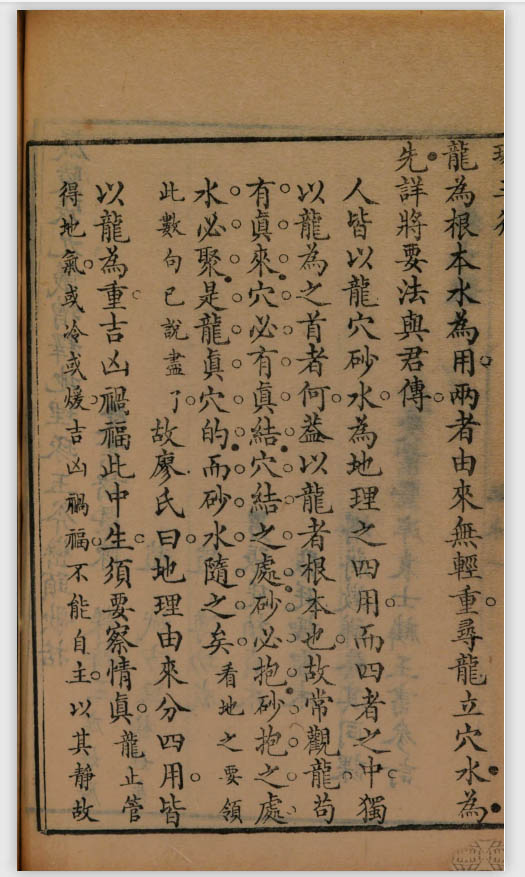 龍為根本水為用兩者由來無輕重尋龍立穴水為
先詳將要法與君傳
人皆以龍穴砂水為地理之四用而四者之中獨
以龍為之首者何葢以龍者根本也故常觀龍苟
有眞來穴必有眞結穴結之處砂必抱砂抱之處
水必聚是龍眞穴的而砂水隨之矣看地之要領
此數句已說盡了故廖氏曰地理由來分四用皆
以龍為重吉凶禍福此中生須要察情眞龍止管
得地氣或冷或煖吉凶禍福不能自主以其靜故